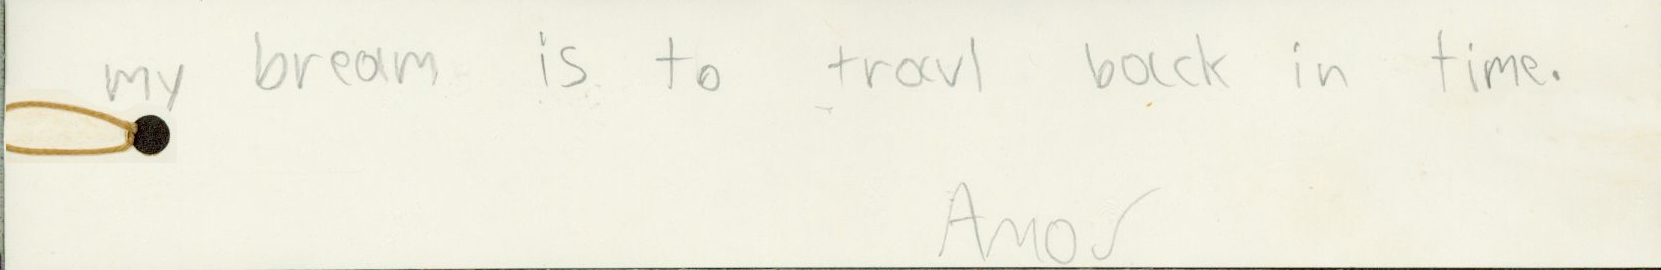 my bream is to travl back in time.
Amos